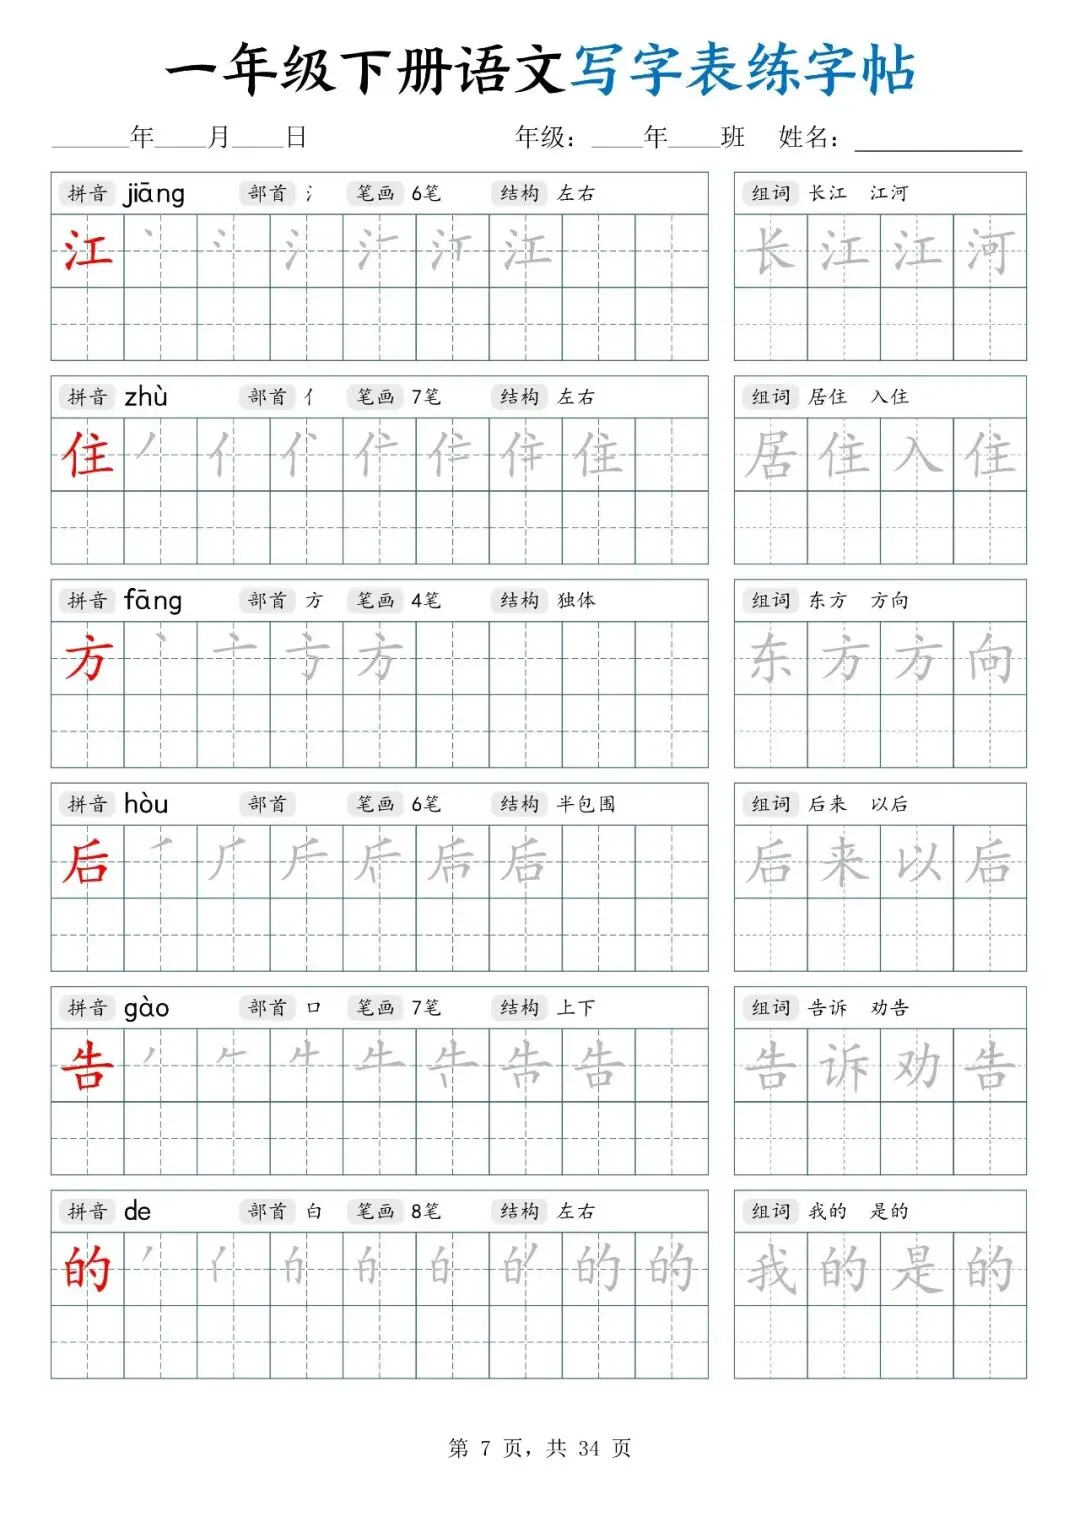 一年级下册语文写字表练字帖
______年____月____日 年级：____年____班 姓名：_____________
拼音 jiāng 部首 氵 笔画 6笔 结构 左右
组词 长江 江河
江 江
长江江河
拼音 zhù 部首 亻 笔画 7笔 结构 左右
组词 居住 入住
住 住
居住入住
拼音 fāng 部首 方 笔画 4笔 结构 独体
组词 东方 方向
方 方
东方方向
拼音 hòu 部首 笔画 6笔 结构 半包围
组词 后来 以后
后 后
后来以后
拼音 gào 部首 口 笔画 7笔 结构 上下
组词 告诉 劝告
告 告
告诉劝告
拼音 de 部首 白 笔画 8笔 结构 左右
组词 我的 是的
的 的
我的是的
第 7 页，共 34 页